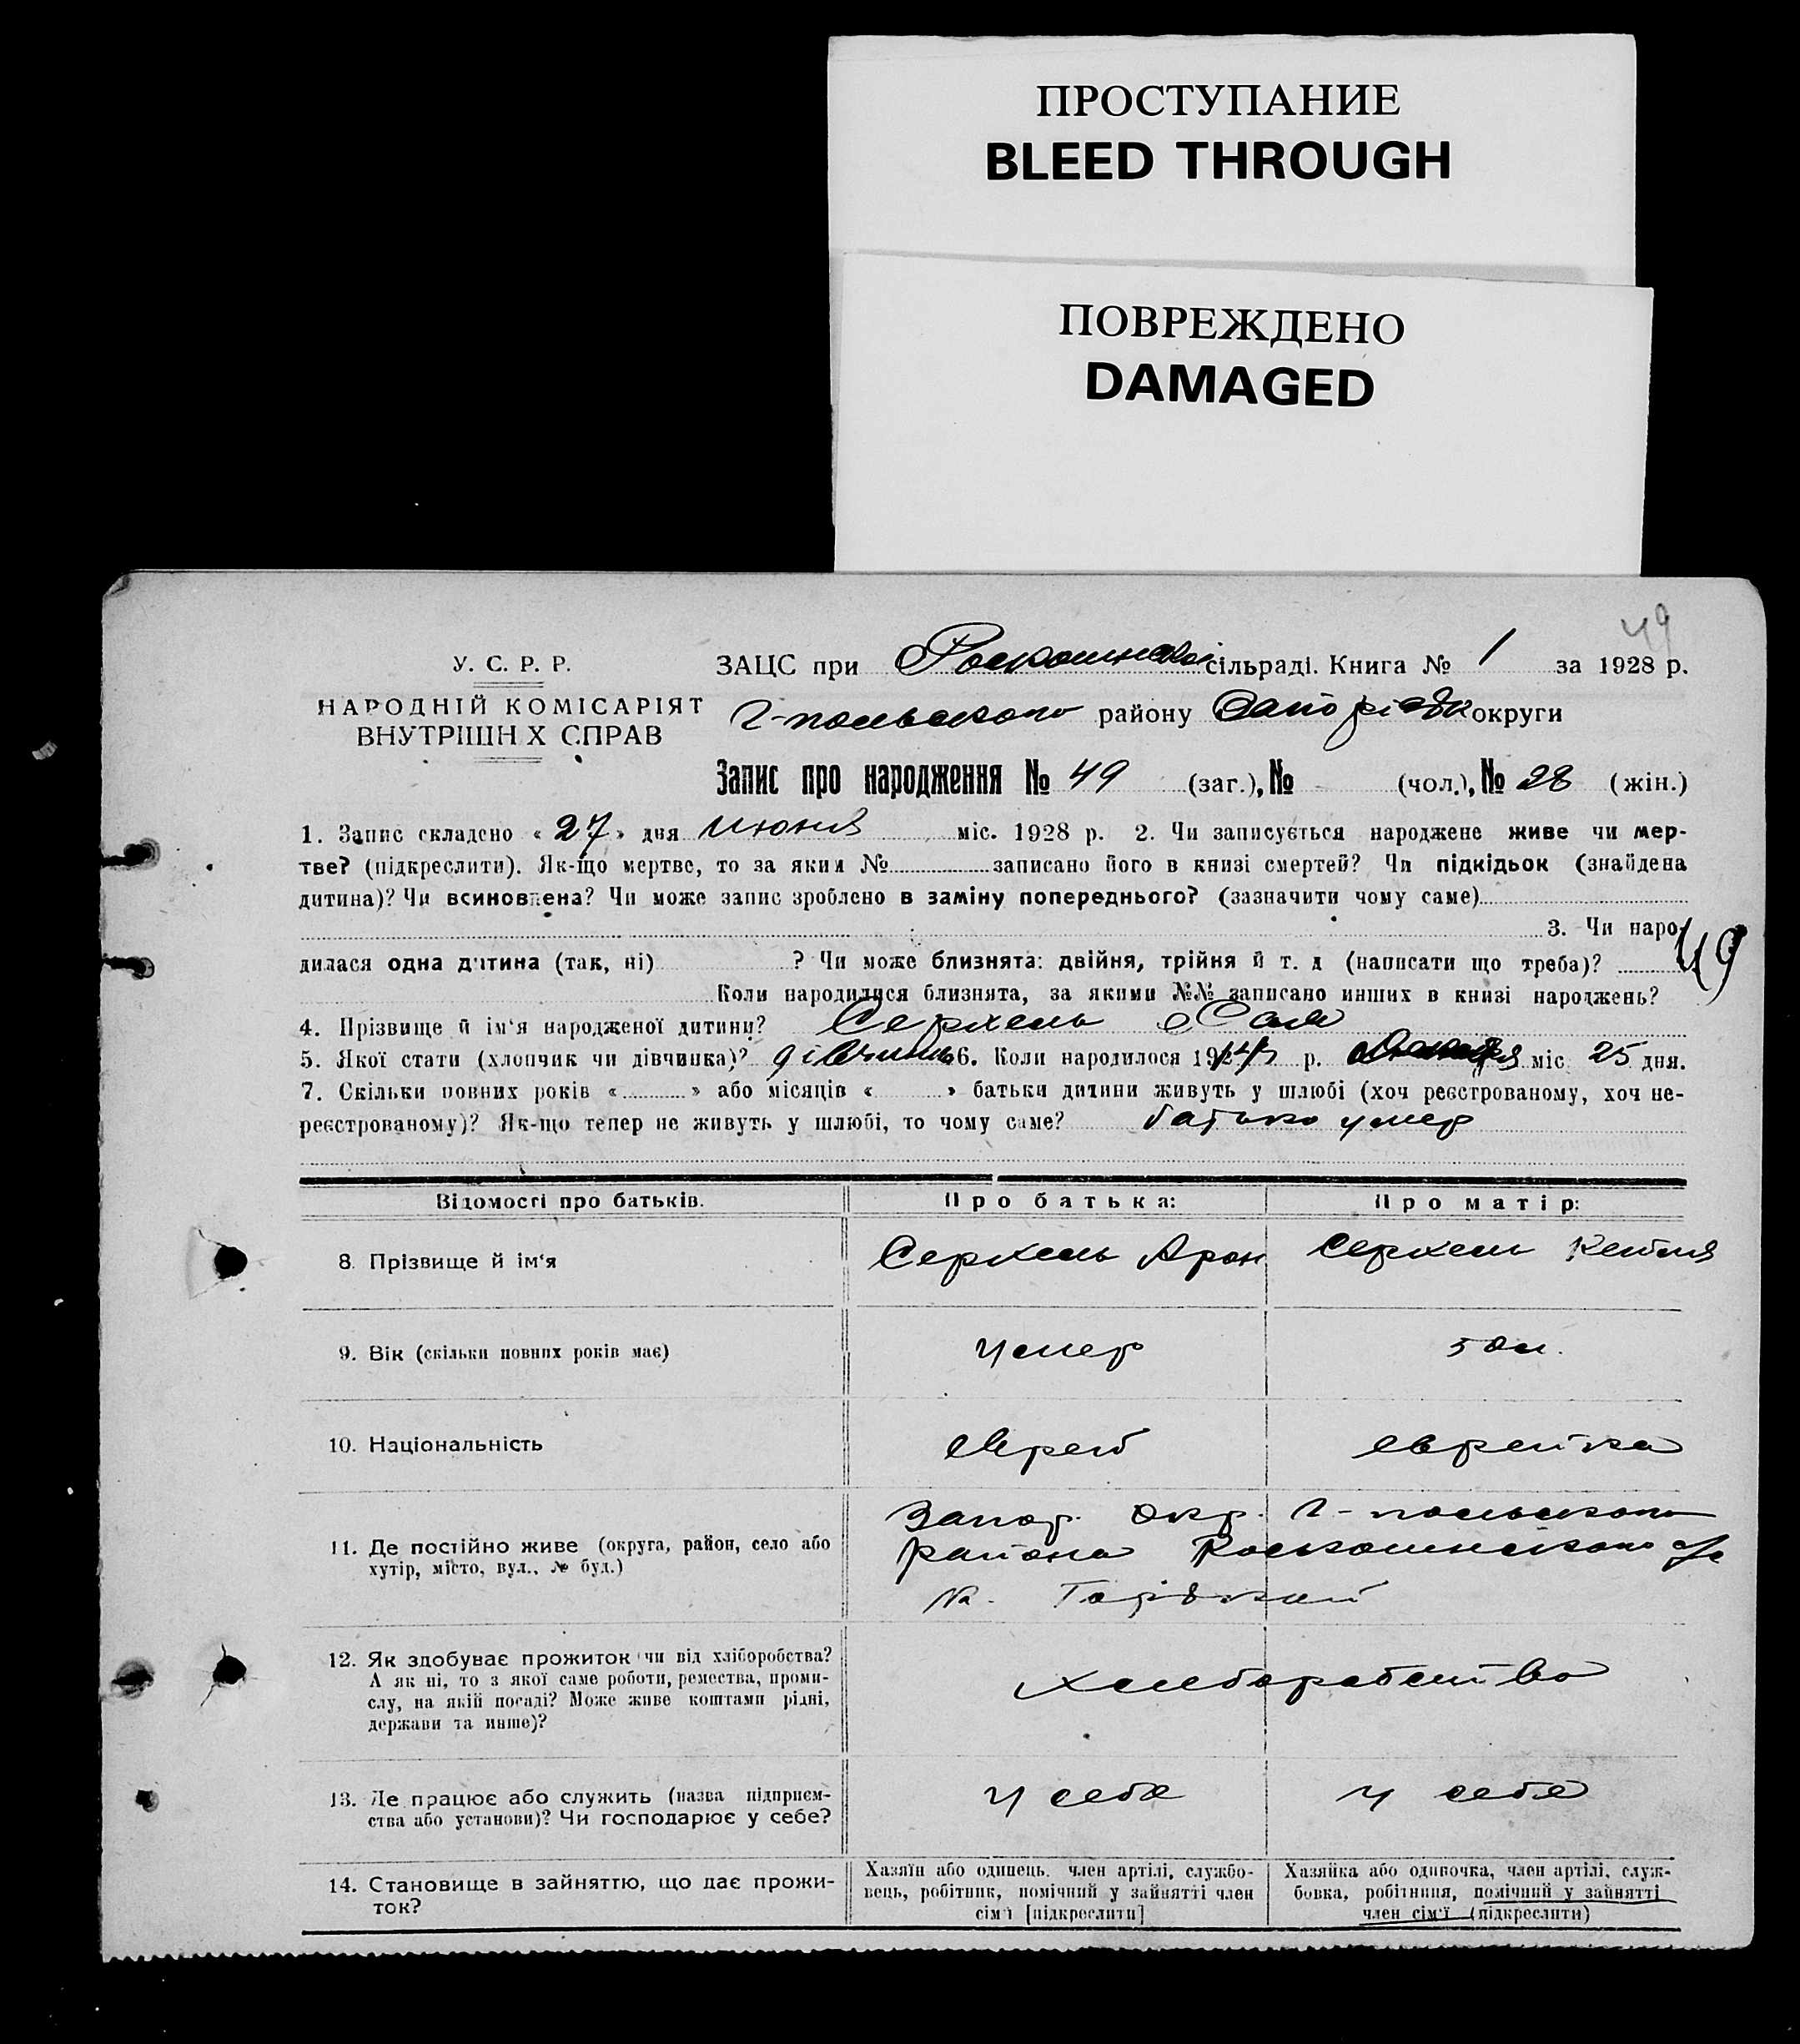 ПРОСТУПАНИЕ
BLEED THROUGH
ПОВРЕЖДЕНО
DAMAGED
49
У. С. Р. Р.
НАРОДНІЙ КОМІСАРІЯТ
ВНУТРІШН Х СПРАВ
ЗАЦС при Роскошнской сільраді. Книга № 1 за 1928 р.
г-польського району округи
Запис про народження № 49 (заг.), № (чол.), № 28 (жін.)
1. Запис складено « 27 » дня июня міс. 1928 р. 2. Чи записується народжене живе чи мер-
тве? (підкреслити). Як-що мертве, то за яким № записано його в книзі смертей? Чи підкідьок (знайдена
дитина)? Чи всиновлена? Чи може запис зроблено в заміну попереднього? (зазначити чому саме)
3. Чи наро-
49
дилася одна дитина (так, ні) ? Чи може близнята: двійня, трійня й т. д (написати що треба)?
Коли народилися близнята, за якими №№ записано инших в книзі народжень?
4. Прізвище й ім‘я народженої дитини?
5. Якої стати (хлопчик чи дівчинка)? дівчинка 6. Коли народилося р. міс 25 дня.
7. Скільки повних років « » або місяців « » батьки дитини живуть у шлюбі (хоч реєстрованому, хоч не-
реєстрованому)? Як-що тепер не живуть у шлюбі, то чому саме? батько умер
Відомості про батьків.
Про батька:
Про матір:
8. Прізвище й ім‘я
Серхель Арон
Серхель
9. Вік (скільки повних років має)
умер
10. Національність
еврей
еврейка
11. Де постійно живе (округа, район, село або
хутір, місто, вул., № буд.)
Запор. Окр. г-польського
района Роскошнского с/с
12. Як здобуває прожиток чи від хліборобства?
А як ні, то з якої саме роботи, ремества, проми-
слу, на якій посаді? Може живе коштами рідні,
держави та инше)?
хлеборобство
13. Де працює або служить (назва підприєм-
ства або установи)? Чи господарює у себе?
у себе
у себе
14. Становище в зайняттю, що дає прожи-
ток?
Хазяїн або одинець. член артілі, службо-
вець, робітник, помічний у зайнятті член
сім‘ї [підкреслити]
Хазяйка або одиночка, член артілі, служ-
бовка, робітниця, помічний у зайнятті
член сім‘ї (підкреслити)